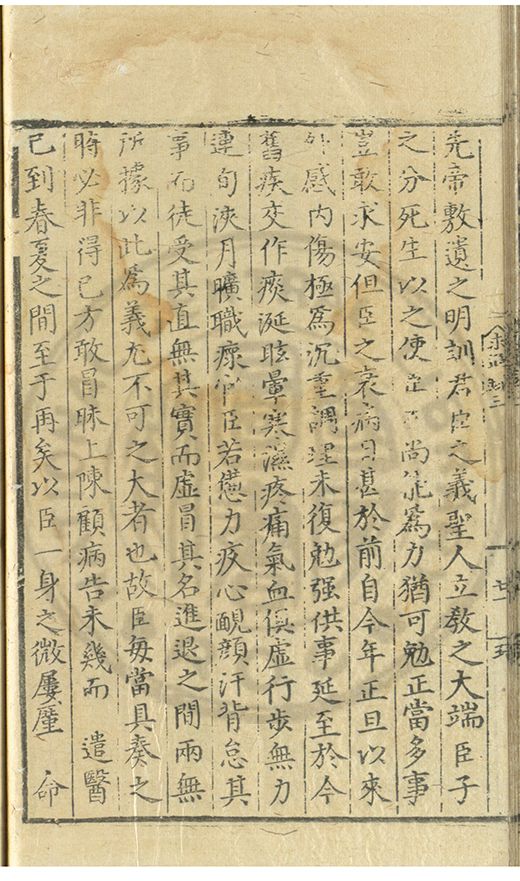 先帝敷遺之明訓君臣之義聖人立教之大端臣子
之分死生以之使臣尚能爲力猶可勉正當多事
豈敢求安但臣之衰病日甚於前自今年正旦以來
外感内傷極爲沉重調理未復勉强供事延至於今
舊疾交作痰涎眩暈寒濕疼痛氣血俱虚行步無力
連旬浹月曠職瘝官臣若憊力疚心靦顔汗背怠其
事而徒受其直無其實而虚冒其名進退之間兩無
所據以此爲義尤不可之大者也故臣每當具奏之
時必非得已方敢冒昧上陳顧病告未幾而 遣醫
已到春夏之間至于再矣以臣一身之微屢廑 命